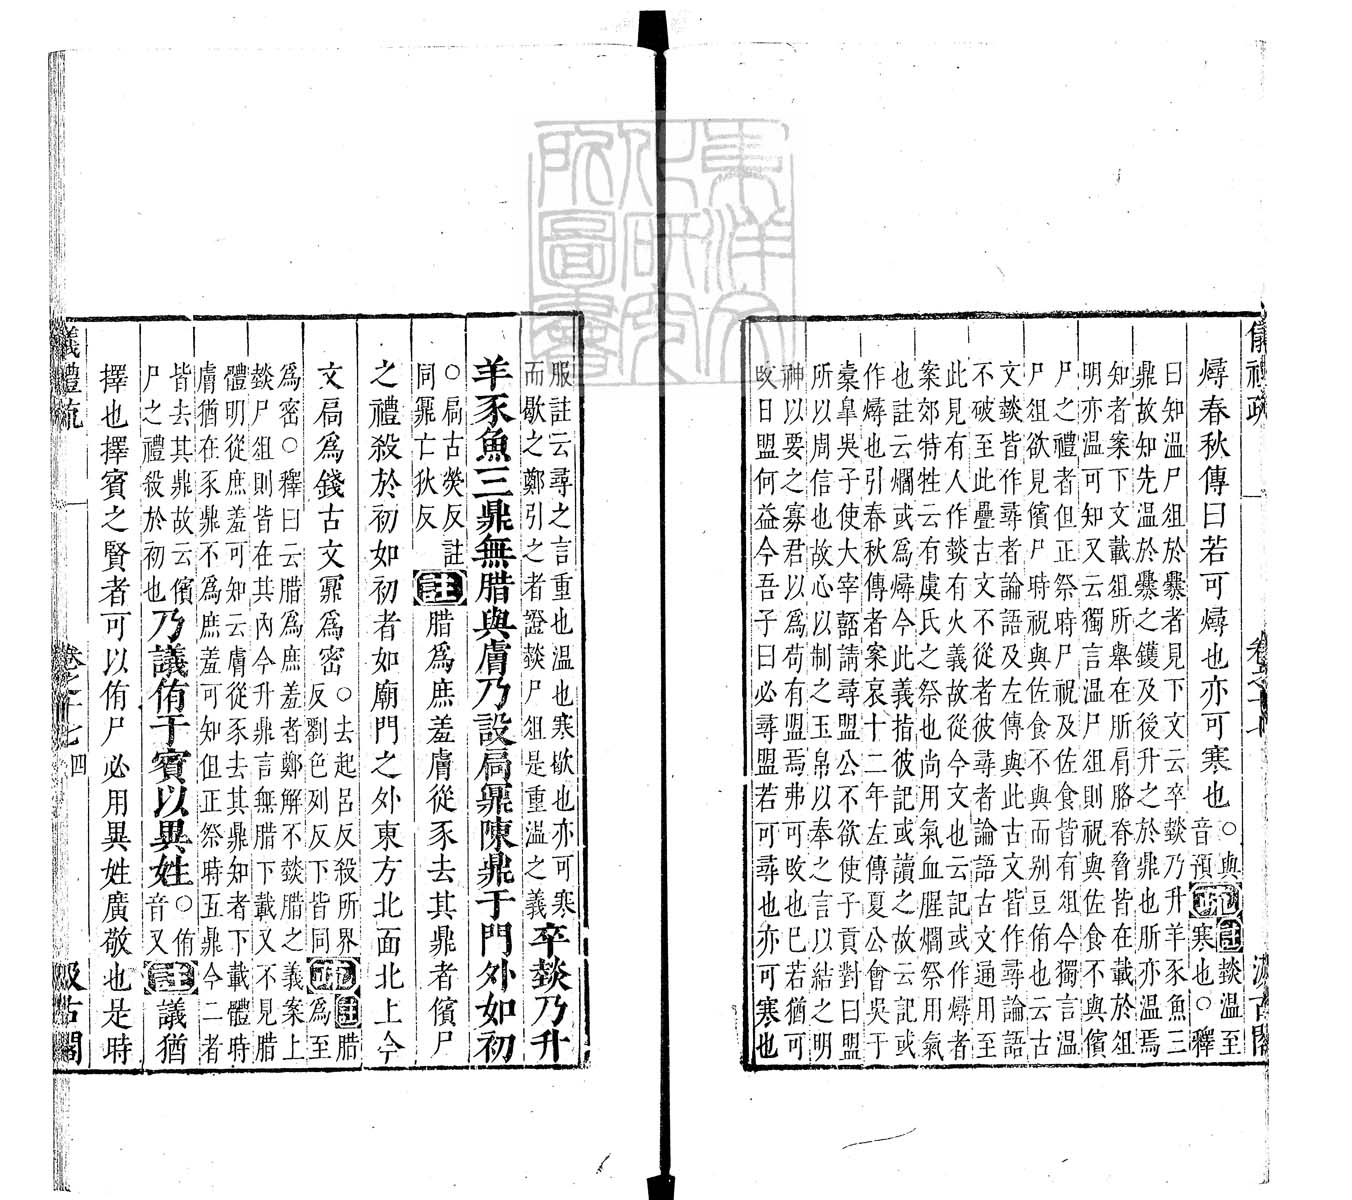 儀禮疏 卷之十七 汲古閣
燖春秋傳曰若可燖也亦可寒也
○與
音預
疏
註
燅溫至
寒也○釋
曰知溫尸俎於爨者見下文云卒燅乃升羊豕魚三
鼎故知先溫於爨之鑊及後升之於鼎也所亦溫焉
知者案下文載俎所舉在肵肩胳脊脅皆在載於俎
明亦溫可知又云獨言溫尸俎則祝與佐食不與儐
尸之禮者但正祭時尸祝及佐食皆有俎今獨言溫
尸俎欲見儐尸時祝與佐食不與而別豆侑也云古
文燅皆作尋者論語及左傳與此古文皆作尋論語
不破至此疊古文不從者彼尋者論語古文通用至
此見有人作燅有火義故從今文也云記或作燖者
案郊特牲云有虞氏之祭也尚用氣血腥爓祭用氣
也註云爓或爲燖今此義指彼記或讀之故云記或
作燖也引春秋傳者案哀十二年左傳夏公會吳于
橐皐吳子使大宰嚭請尋盟公不欲使子貢對曰盟
所以周信也故心以制之玉帛以奉之言以結之明
神以要之寡君以爲苟有盟焉弗可改也已若猶可
改日盟何益今吾子曰必尋盟若可尋也亦可寒也
服註云尋之言重也溫也寒歇也亦可寒
而歇之鄭引之者證燅尸俎是重溫之義
卒燅乃升
羊豕魚三鼎無腊與膚乃設扃鼏陳鼎于門外如初
○扃古熒反註
同鼏亡狄反
註
腊爲庶羞膚從豕去其鼎者儐尸
之禮殺於初如初者如廟門之外東方北面北上今
文扃爲鉉古文鼏爲密
○去起呂反殺所界
反劉色列反下皆同
疏
註
腊
爲至
爲密○釋曰云腊爲庶羞者鄭解不燅腊之義案上
燅尸俎則皆在其內今升鼎言無腊下載又不見腊
體明從庶羞可知云膚從豕去其鼎知者下載體時
膚猶在豕鼎不爲庶羞可知但正祭時五鼎今二者
皆去其鼎故云儐
尸之禮殺於初也
乃議侑于賓以異姓
○侑
音又
註
議猶
擇也擇賓之賢者可以侑尸必用異姓廣敬也是時
儀禮疏 卷之十七 四 汲古閣